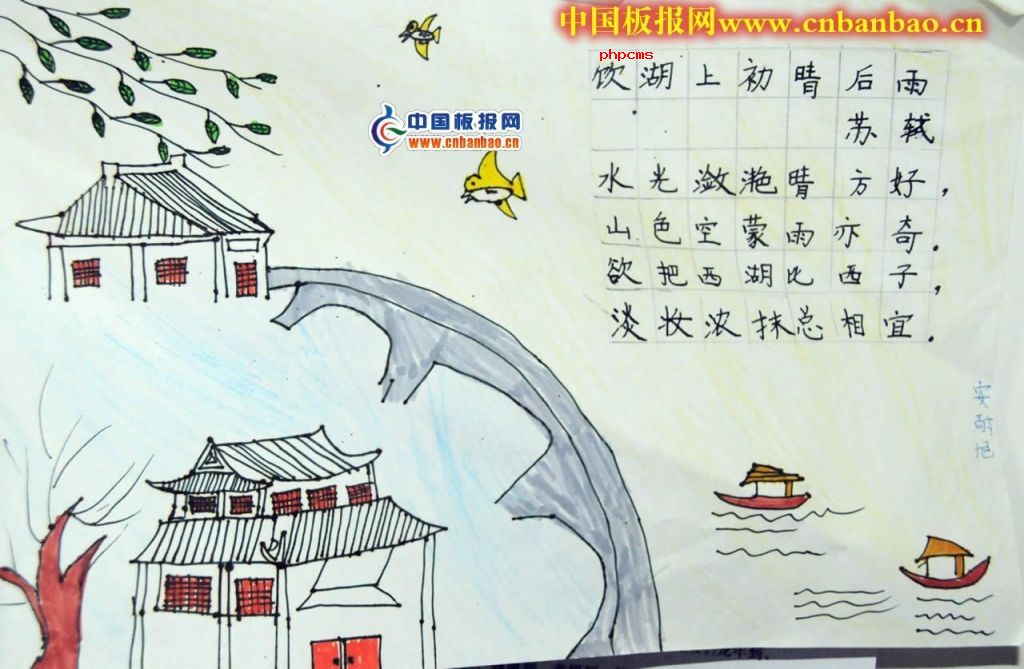 中国板报网www.cnbanbao.cn
phpcms
饮湖上初晴后雨
苏轼
中国板报网
www.cnbanbao.cn
水光潋滟晴方好，
山色空蒙雨亦奇.
欲把西湖比西子，
淡妆浓抹总相宜.